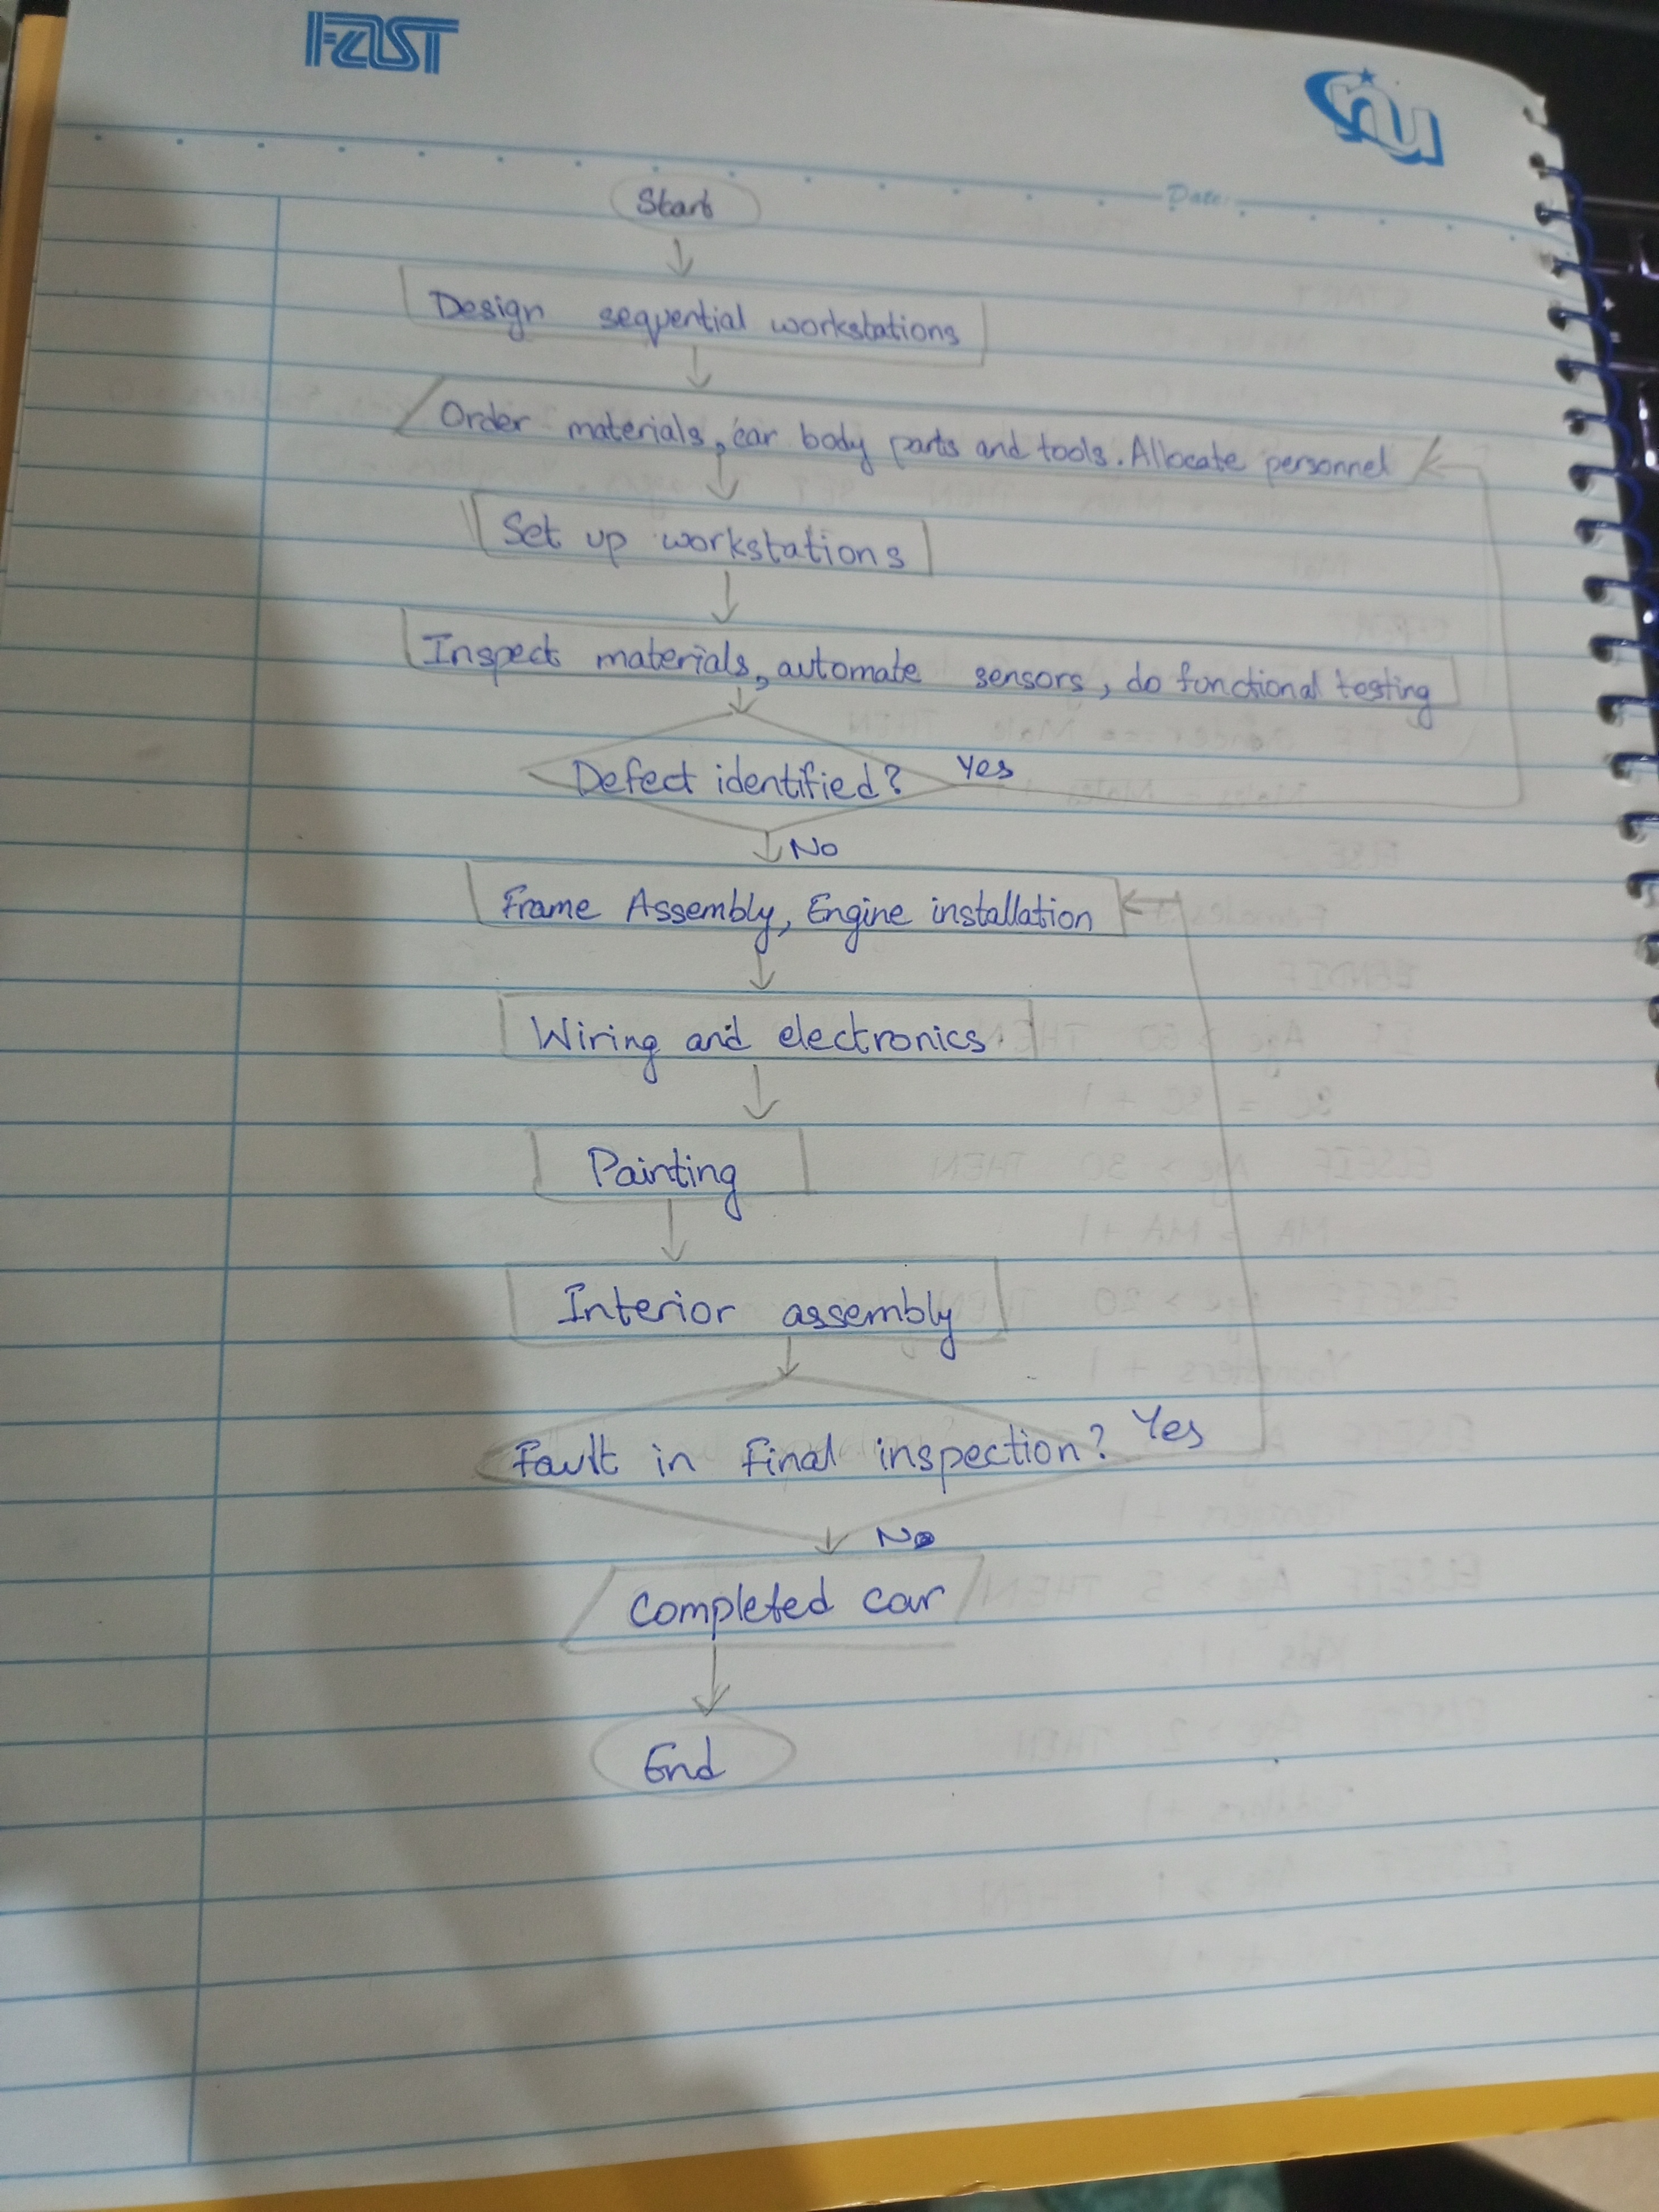 FAST
nu
Date:
Start
Design sequential workstations
Order materials, car body parts and tools. Allocate personnel
Set up workstations
Inspect materials, automate sensors, do functional testing
Defect identified? Yes
No
Frame Assembly, Engine installation
Wiring and electronics
Painting
Interior assembly
Fault in final inspection? Yes
No
Completed car
End